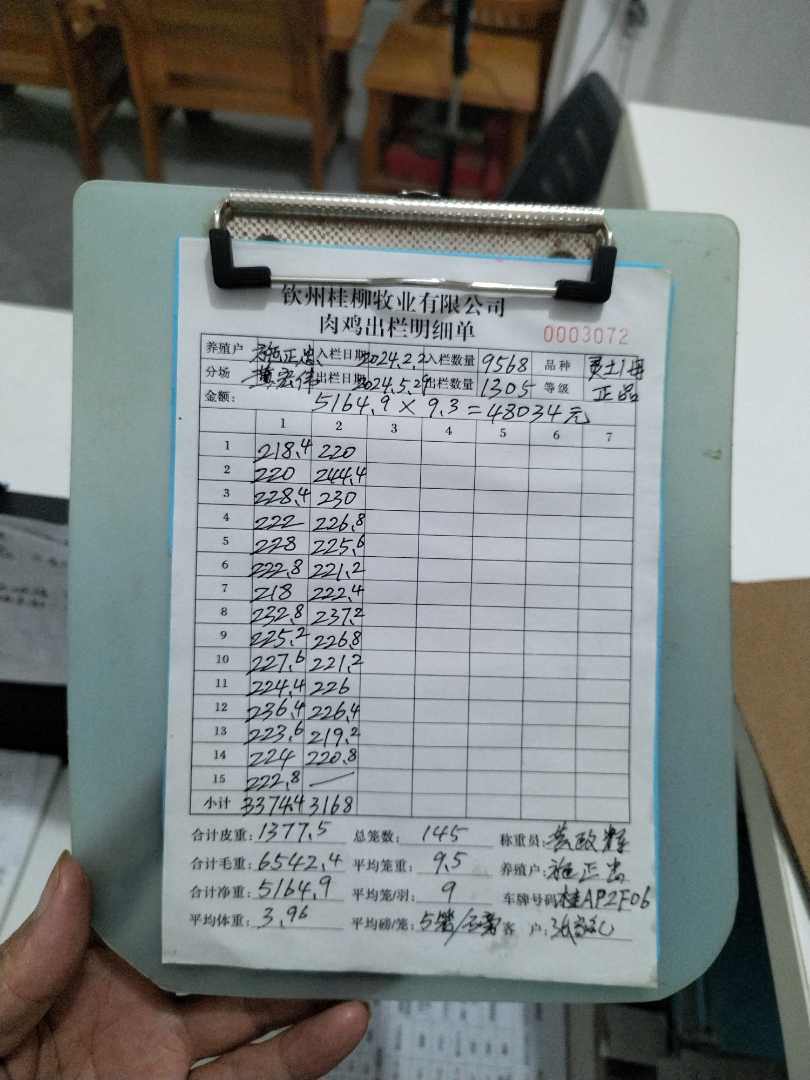 钦州桂柳牧业有限公司
肉鸡出栏明细单 0003072
养殖户 施正 入栏日期 2024.2.2 入栏数量 9568 品种
分场 宏伟 出栏日期 2024.5.29 出栏数量 1305 等级 正品
金额: 5164.9 × 9.3 = 48034元
1 2 3 4 5 6 7
1 218.4 220
2 220 244.4
3 228.4 230
4 222 226.8
5 228 225.6
6 222.8 221.2
7 218 222.4
8 232.8 237.2
9 225.2 226.8
10 227.6 221.2
11 224.4 226
12 236.4 226.4
13 223.6 219.2
14 224 220.8
15 222.8 —
小计 3374.4 3168
合计皮重: 1377.5 总笼数: 145 称重员:
合计毛重: 6542.4 平均笼重: 9.5 养殖户: 施正
合计净重: 5164.9 平均笼/羽: 9 车牌号码 桂AP2F06
平均体重: 3.96 平均磅/笼: 5 客 户: